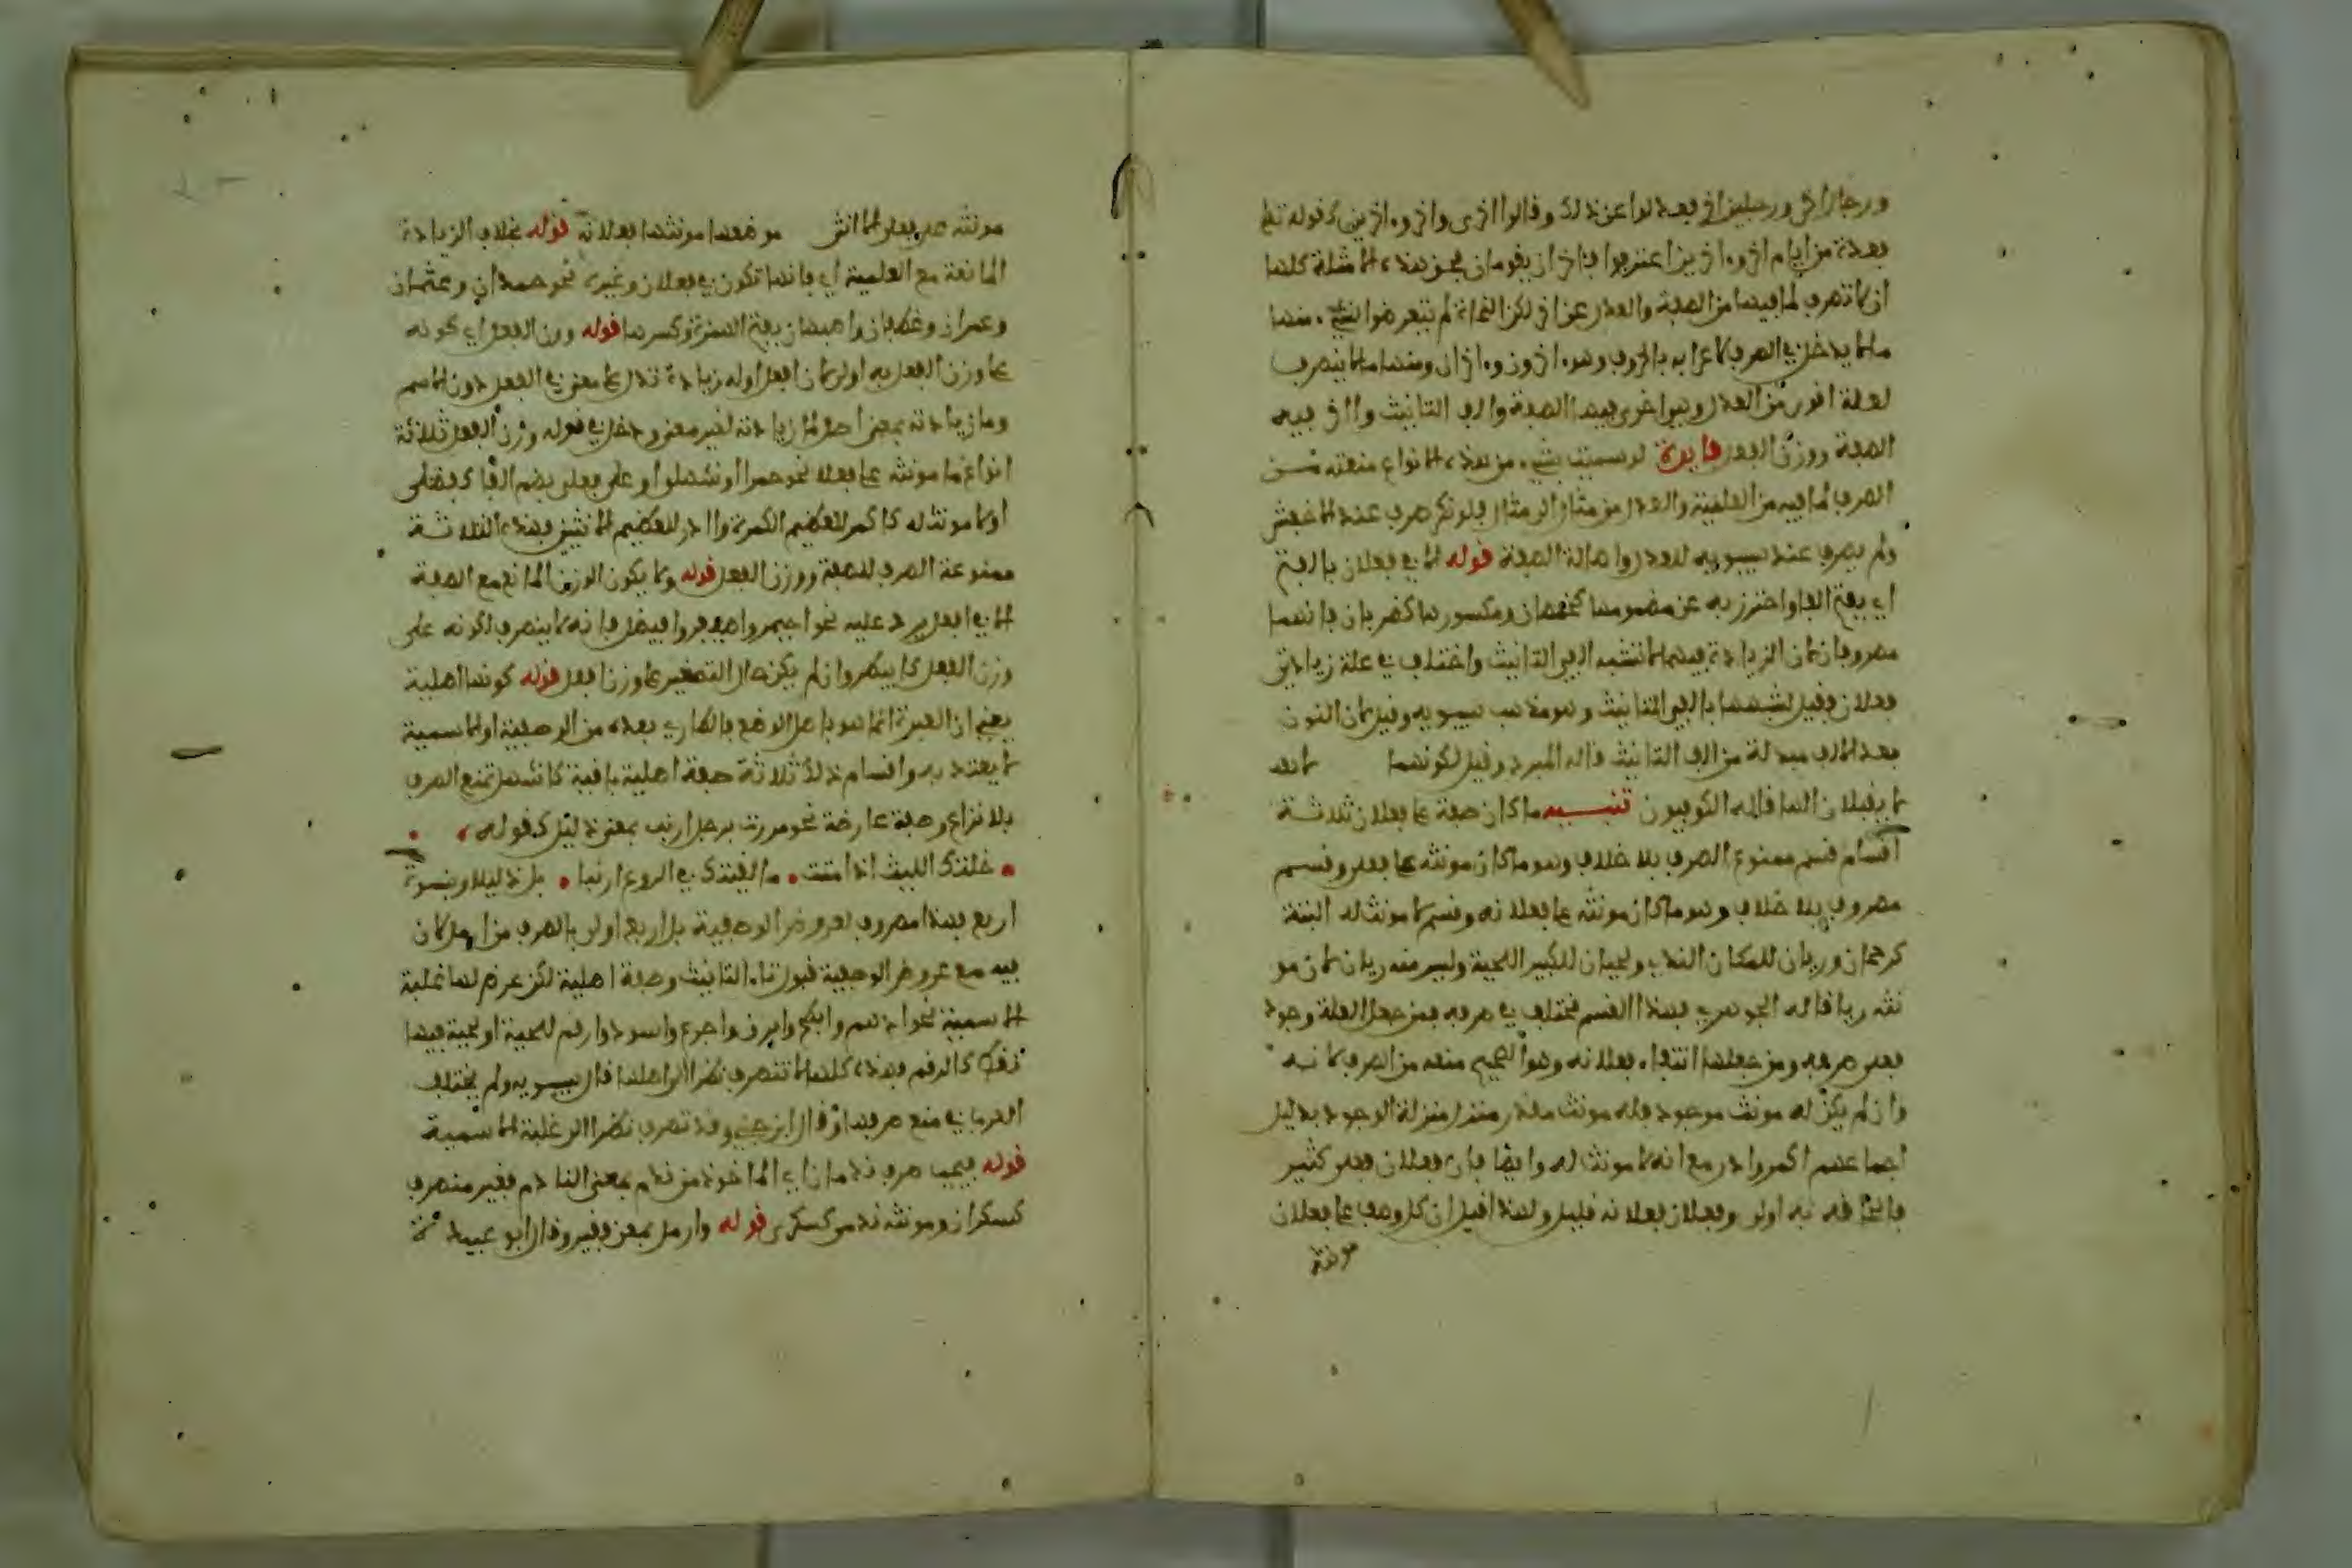 ورجال اخر ورجلين اخر فعدلوا عن ذلك وقالوا اخرى واخر وءاخرين كقوله تعلى
فعدة من ايام اخر وءاخرين اعترفوا فاخران يقومان فجق هذه الامثلة كلها
ان لا تصرف لما فيها من الصفة والعدل عن اخر لكن النحاة لم يتعرضوا لشيء منها
ما لا يدخل في الصرف لاعرابه بالحروف وهو ءاخرون وءاخران ومنها ما لا ينصرف
لعلة اقوى من العدل وهو اخرى ففيها الصفة والف التانيث وااخر ففيه
الصفة ووزن الفعل فايدة لو سميت بشيء من هذه الانواع منعته مــن
الصرف لما فيه من العلمية والعدل من مثال الى مثال فلو نكر صرف عند الاخفش
ولم يصرف عند سيبويه للعدل واصالة الصفة قوله الا في فعلان بالفتح
اي بفتح الفا واحترز به عن مضمومها كخمصان ومكسورها كضربان فانهما
مصروفان لان الزيادة فيهما لا تشبه الفي التانيث واختلف في علة زيادتي
فعلان فقيل لشبهها بالفي التانيث وهو مذهب سيبويه وقيل لان النون
بعد الالف مبدلة من الف التانيث قاله المبرد وقيل لكونهما لانه
لا يقبلان الها قاله الكوفيون تنبــيه ما كان صفة على فعلان ثلاثــة
اقسام قسم ممنوع الصرف بلا خلاف وهو ما كان مونثه على فعلى وقسم
مصروف بلا خلاف وهو ما كان مونثه على فعلانه وقسم لا مونث له البتة
كرحمان وريان للمكان الندي ولحيان للكبير اللحية وليس منه ريان لان مو
نثه ريا قاله الجوهري فهذا القسم مختلف في صرفه فمن جعل العلة وجود
فعلى صرفه ومن جعلها انتفاء فعلانه وهو الصحيح منعه من الصرف لانــه
وان لم يكن له مونث موجود فله مونث مقدر منزل منزلة الوجود بدليل
اجماعهم اكمر واادر مع انه لا مونث له وايضا فان فعلان فعلى كثير
فالحاقه به اولى وفعلان فعلانه قليل ولهذا قيل ان كل وصف على فعلان
مونثه
مونثه على فعلى الا اثنى مو ضعها مونثها فعلانة قوله بخلاف الزيادة
المانعة مع العلمية اي فانها تكون في فعلان وغيره نحو حمدان وعثمان
وعمران وغطفان واصبهان بفتح الهمزة وكسرها قوله وزن الفعل اي كونه
على وزن الفعل به اولى لان افعل اوله زيادة تدل على معنى في الفعل دون الاسم
وما زيادته بمعنى اصل لما زيادته لغير معنى ودخل في قوله وزن الفعل ثلاثة
انواع ما مونثه على فعلا نحو حمرا وشهلا او على فعلى بضم الفا كفضلى
او لا مونث له كاكمر للعظيم الكمرة وااادر للعظيم الانثيين فهذه الثلاثــة
ممنوعة الصرف للصفة ووزن الفعل قوله ولا يكون الوزن المانع مع الصفة
الا في افعل يرد عليه نحو احيمر واصيفر وافيضل فانه لا ينصرف لكونه على
وزن الفعل كابيطر وان لم يكن حال التصغير على وزن افعل قوله كونها اصلية
يعني ان العبرة انما هو باصل الوضع فالطاري بعده من الوصفية او الاسمية
لا يعتد به واقسام ذلك ثلاثة صفة اصلية باقية كاشهل تمنع الصرف
بلا نزاع وصفة عارضة نحو مررت برجل ارنب بمعنى ذليل كقوله
خلتك الليث اذا امنت ما الفيتك في الروع ارنبا بل ذليلا وبنسوة
اربع فهذا مصروف لعروض الوصفية بل اربع اولى بالصرف من ارنب لان
فيه مع عروض الوصفية قبول تاء التانيث وصفة اصلية لكن عرض لها غلبة
الاسمية نحو ادهم وابطح وابرق واجرع واسود وارقم للحية او لحية فيها
نقط كالرقم فهذه كلها لا تنصرف نظرا الى اصلها قال سيبويه ولم يختلف
العرب في منع صرفها وقال ابن جني وقد تصرف نظرا الى غلبة الاسمية
قوله فيجب صرف ندمان اي الماخوذ من ندم بمعنى النادم فغير منصرف
كسكران ومونثه ندمى كسكرى قوله وارمل بمعنى فقير وقال ابو عبيد